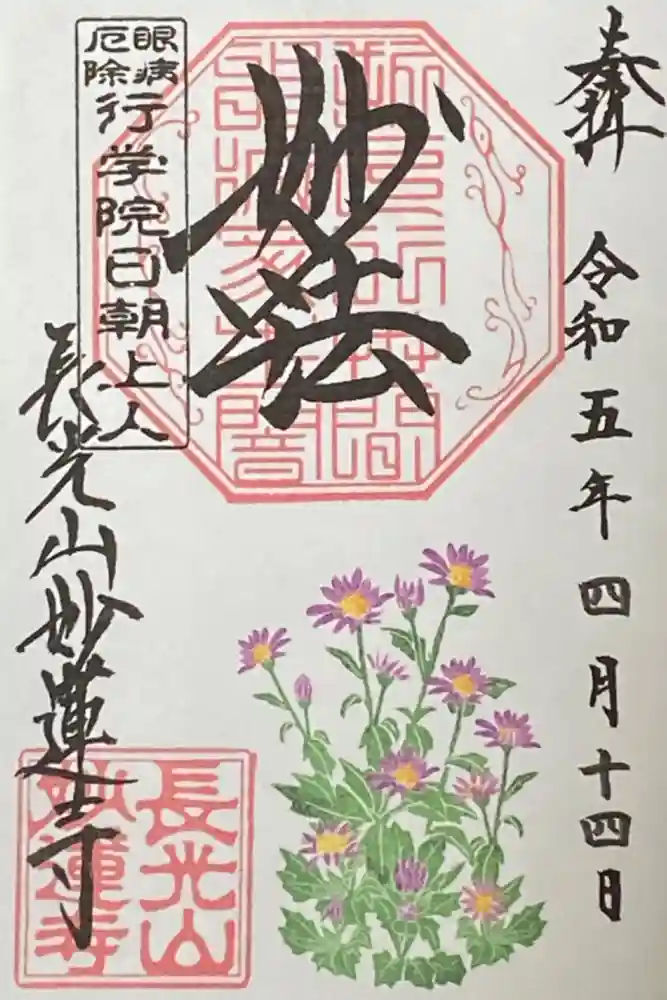 奉拝
令和五年四月十四日
妙法
眼病
厄除
行学院日朝上人
長光山妙蓮寺
長光山
妙蓮寺